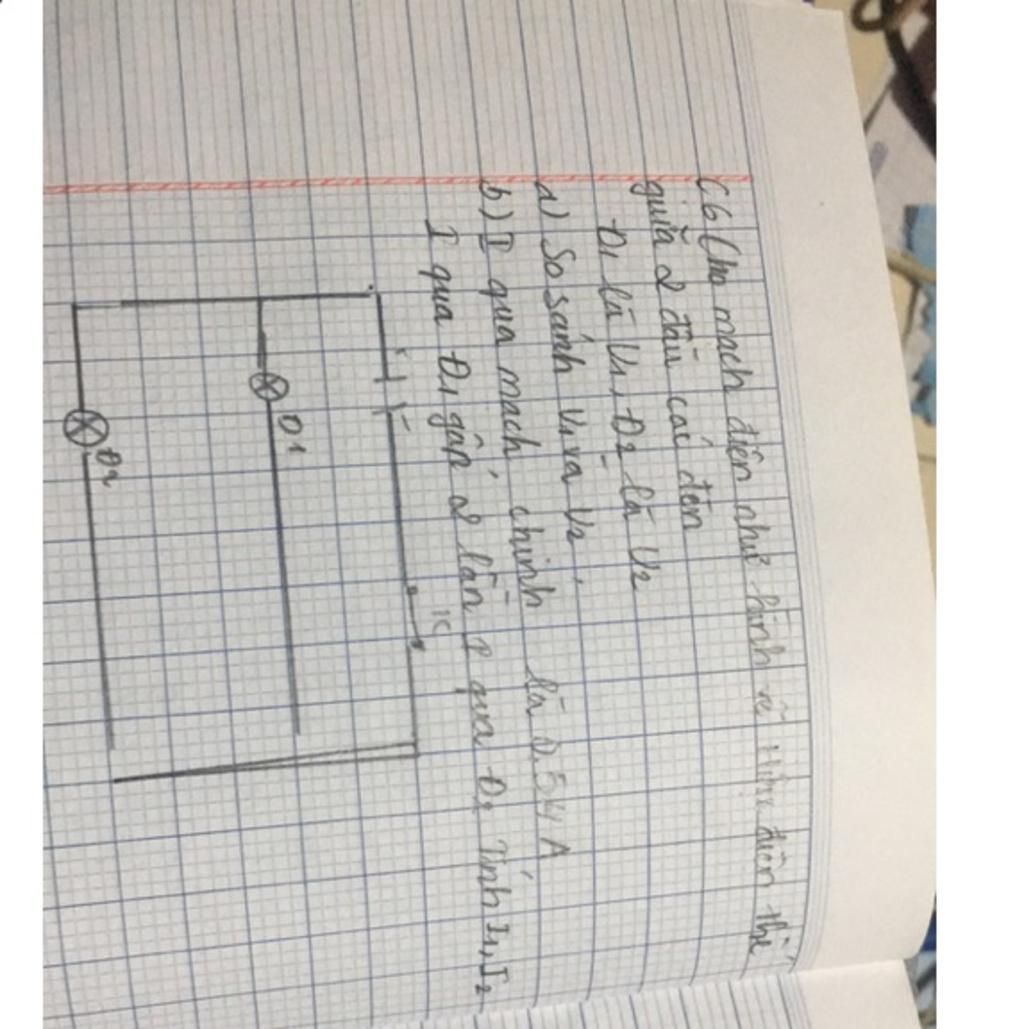 C6 Cho mạch điện như hình vẽ Hiệu điện thế
giữa 2 đầu các đèn
Đ1 là U1, Đ2 là U2
a) So sánh U1 và U2
b) I qua mạch chính là 0,54 A
I qua Đ1 gấp 2 lần I qua Đ2 Tính I1, I2
+ -
K
Đ1
Đ2